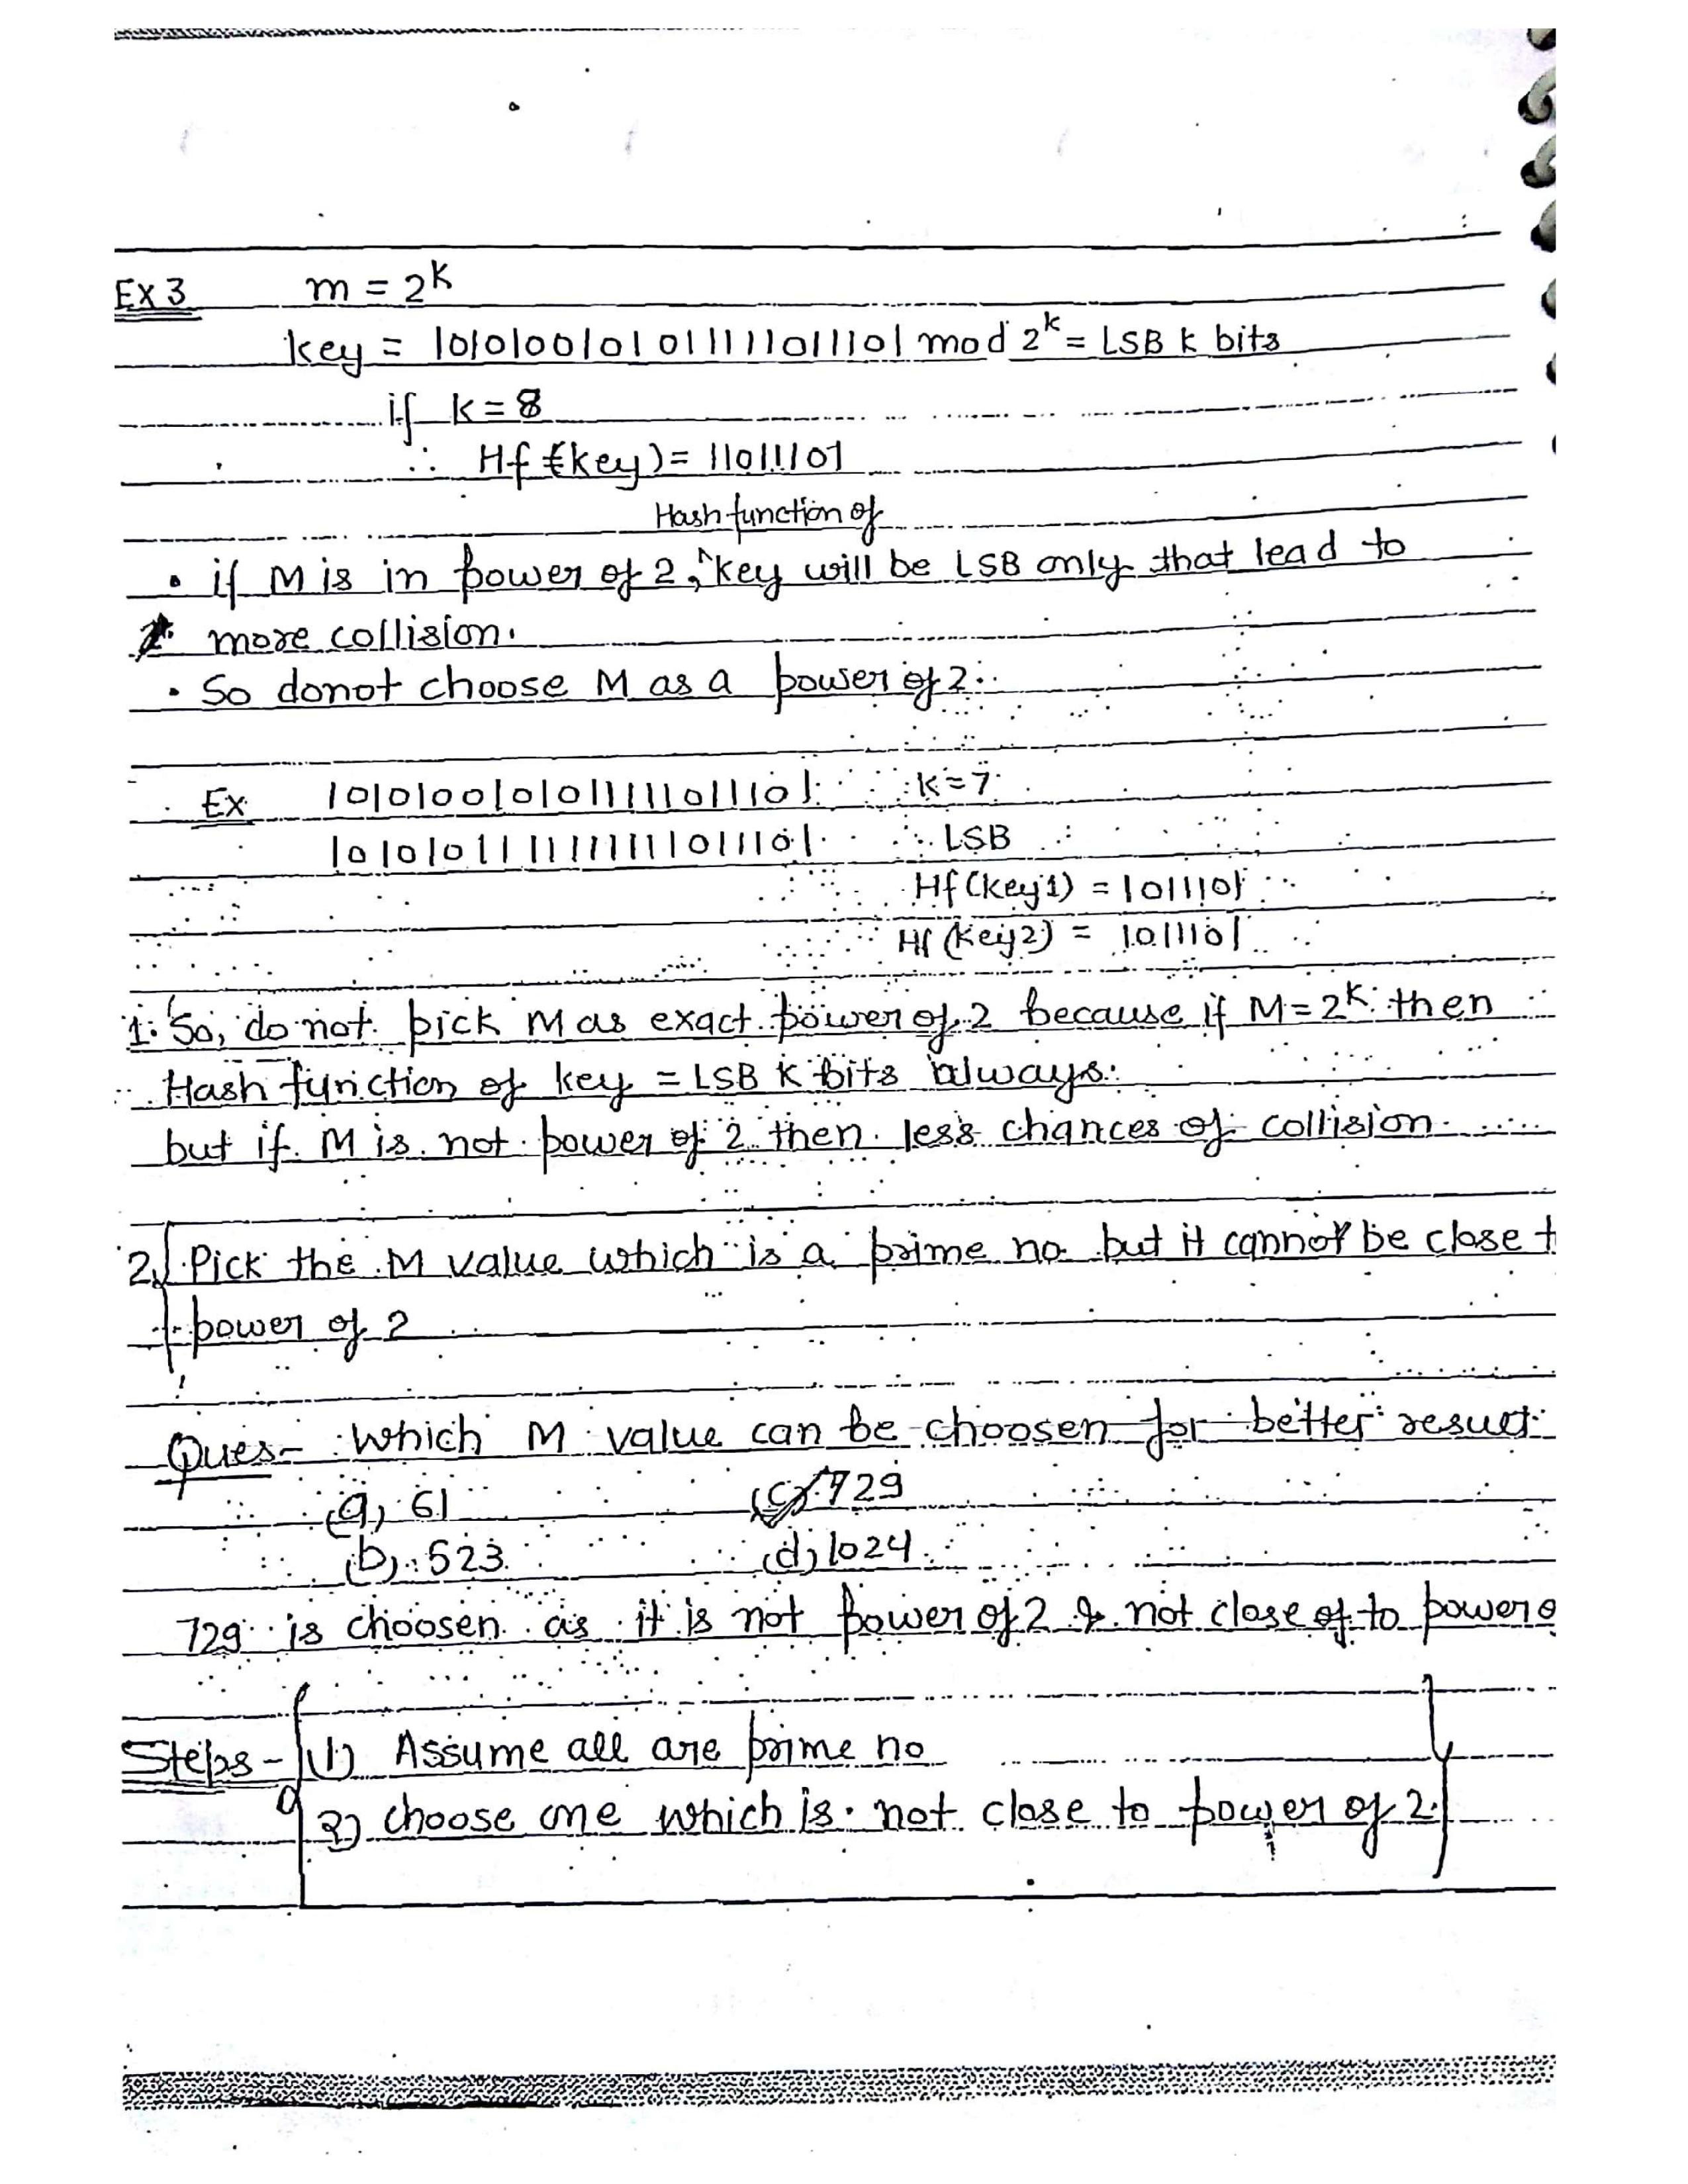 Ex 3 m = 2^k
key = 1010100101011111011101 mod 2^k = LSB k bits
if k = 8
∴ Hf (key) = 11011101
Hash function of
• if M is in power of 2, ^key will be LSB only that lead to
more collision.
• So donot choose M as a power of 2.
Ex 1010100101011111011101 k = 7
LSB
Hf (key1) = 1011101
Hf (key2) = 1011101
1. So, do not pick M as exact power of 2 because if M = 2^k then
Hash function of key = LSB k bits always.
but if M is not power of 2 then less chances of collision
2. Pick the M value which is a prime no but it cannot be close t
power of 2
Ques- Which M value can be choosen for better result
(a) 61 (c) 729
(b) 523 (d) 1024
729 is choosen as it is not power of 2 & not close of to power o
Steps - (1) Assume all are prime no
2) choose one which is not close to power of 2.